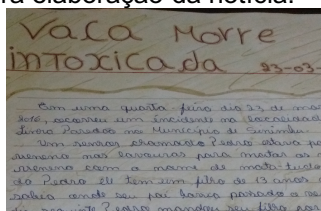 ra elaboração da notícia.
Vaca Morre
inToxicada 23-03-
Em uma quarta feira dia 23 de mar
2016, ocorreu um incidente na localidade
Linha Paredão no Município de Sinimbu.
Um senhor chamado Pedro estava po
veneno nas lavouras para matar as
veneno com o nome de mata tudo
do Pedro ele tem um filho de 13 anos
sabia onde seu pai havia parado o ve
Pedro mandou seu filho por